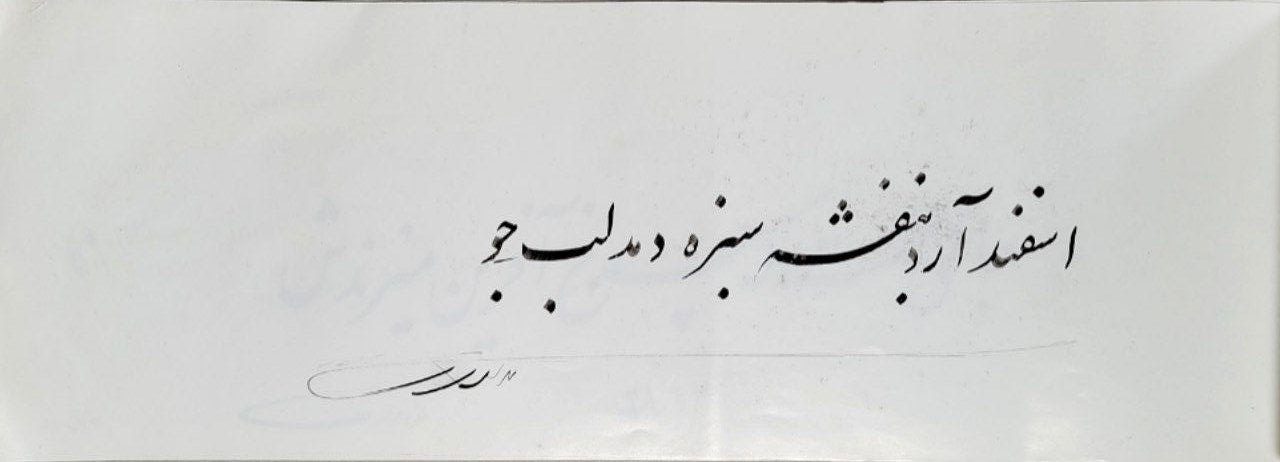 اسفند آرد بنفشه سبزه دمد لب جو